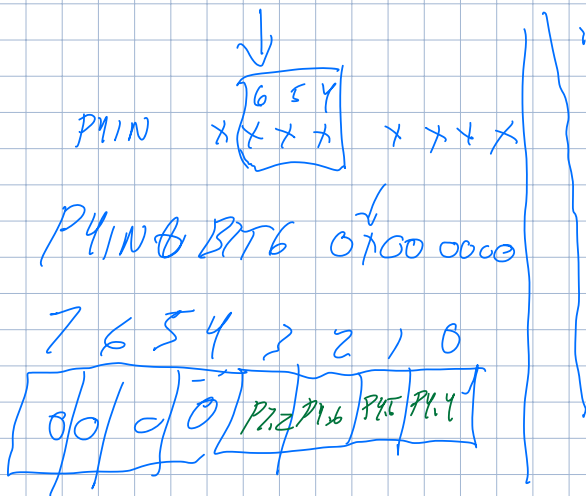 6 5 4
P4IN X X X X X X X X
P4IN & BIT6 0X00 0000
7 6 5 4 3 2 1 0
0 0 0 0 P7.2 P4.6 P4.5 P4.4